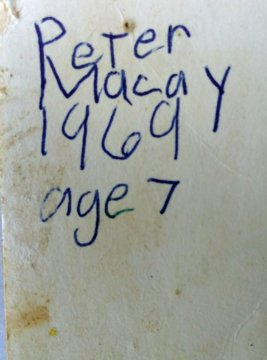 Peter
Macay
1969
age 7